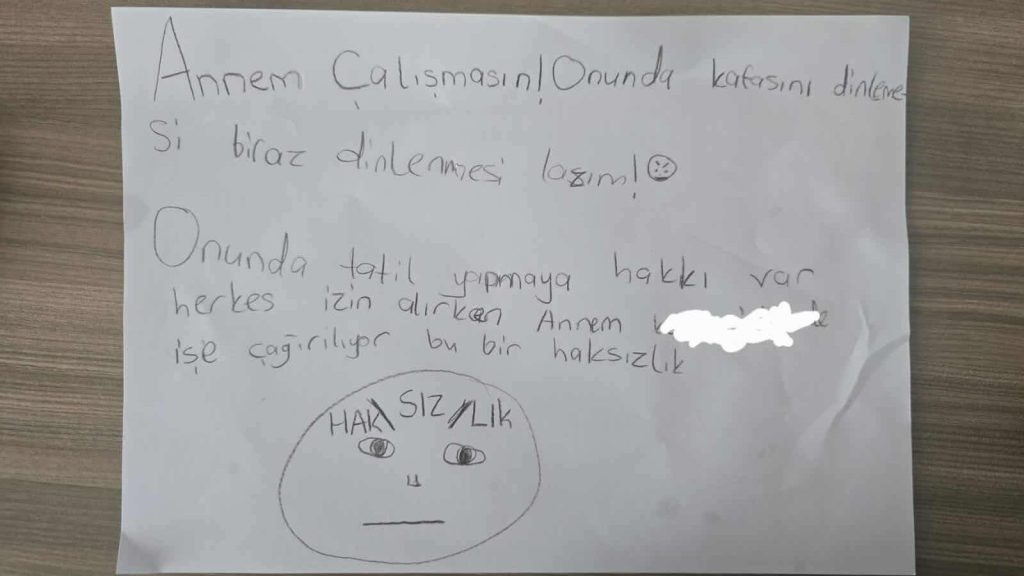 Annem Çalışmasın! Onunda kafasını dinleme-
si biraz dinlenmesi lazım!
Onunda tatil yapmaya hakkı var
herkes izin alırken Annem
işe çağırılıyor bu bir haksızlık
HAK\SIZ/LIK